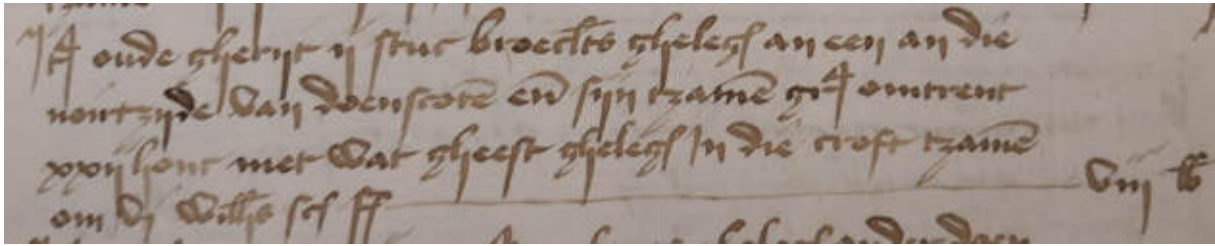 It oude gherijt ij stuc broeclts ghelegh an een an die
nortzijde van doenscotē en̄ sijn tzamē grot omtrent
xxij hont met wat gheest ghelegh In die croft tzamē
om vj Willēs scf ff viij lb